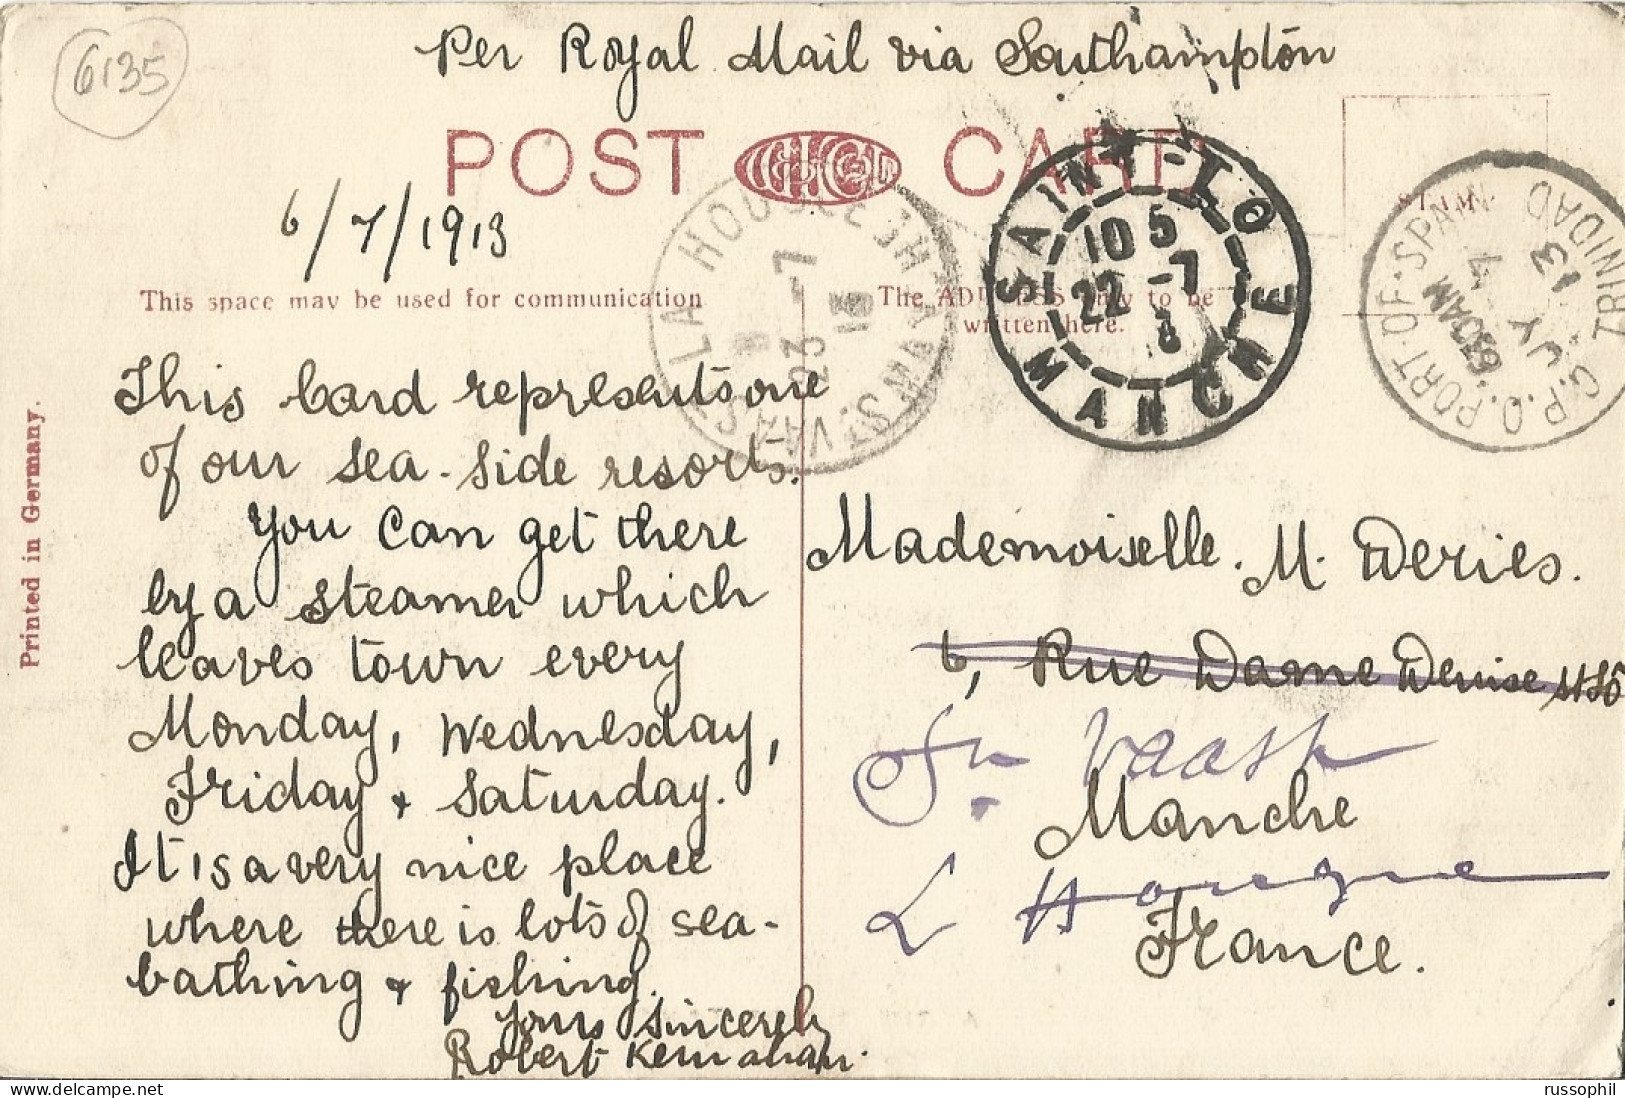 6135
Per Royal Mail via Southampton
POST CARD
6/7/1913
STAMP
This space may be used for communication
The ADDRESS only to be
written here.
Printed in Germany.
LA HOUGUE
23 -7
ST VAAST
SAINT-LO
10 5
22 -7
MANCHE
G.P.O. PORT-OF-SPAIN
630AM
JY 7
13
TRINIDAD
This Card represents one
of our sea-side resorts.
You can get there
by a steamer which
leaves town every
Monday, Wednesday,
Friday & Saturday.
It is a very nice place
where there is lots of sea-
bathing & fishing.
Yours Sincerely
Robert Kernahan.
Mademoiselle. M. Deries.
6, Rue Dame Denise St Lô
St Vaast
Manche
L Hougue
France.
delcampe.net
russophil